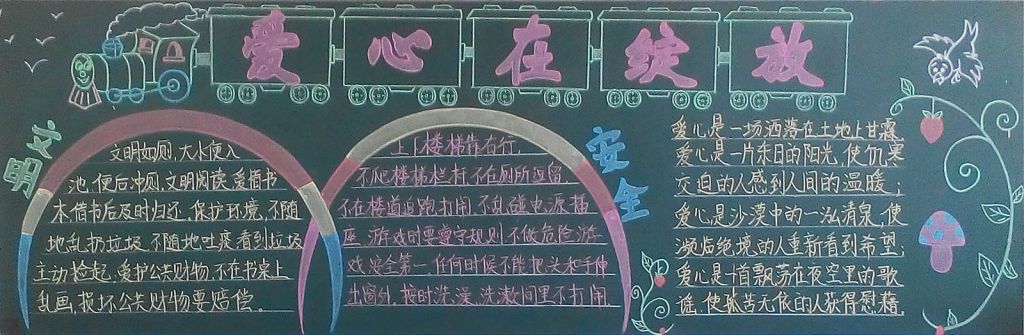 爱心在绽放
文明
文明如厕,大小便入
池,便后冲厕,文明阅读,爱惜书
本,借书后及时归还,保护环境,不随
地乱扔垃圾,不随地吐痰,看到垃圾
主动捡起,爱护公共财物,不在书桌上
乱画,损坏公共财物要赔偿。
安全
上下楼梯靠右行,
不爬楼梯栏杆,不在厕所逗留,
不在楼道追跑打闹,不乱碰电源插
座,游戏时要遵守规则,不做危险游
戏,安全第一,任何时候不能把头和手伸
出窗外,按时洗澡,洗漱间里不打闹。
爱心是一场洒落在土地上甘露,
爱心是一片冬日的阳光,使饥寒
交迫的人感到人间的温暖;
爱心是沙漠中的一泓清泉,使
濒临绝境的人重新看到希望;
爱心是一首飘荡在夜空里的歌
谣,使孤苦无依的人获得慰藉。